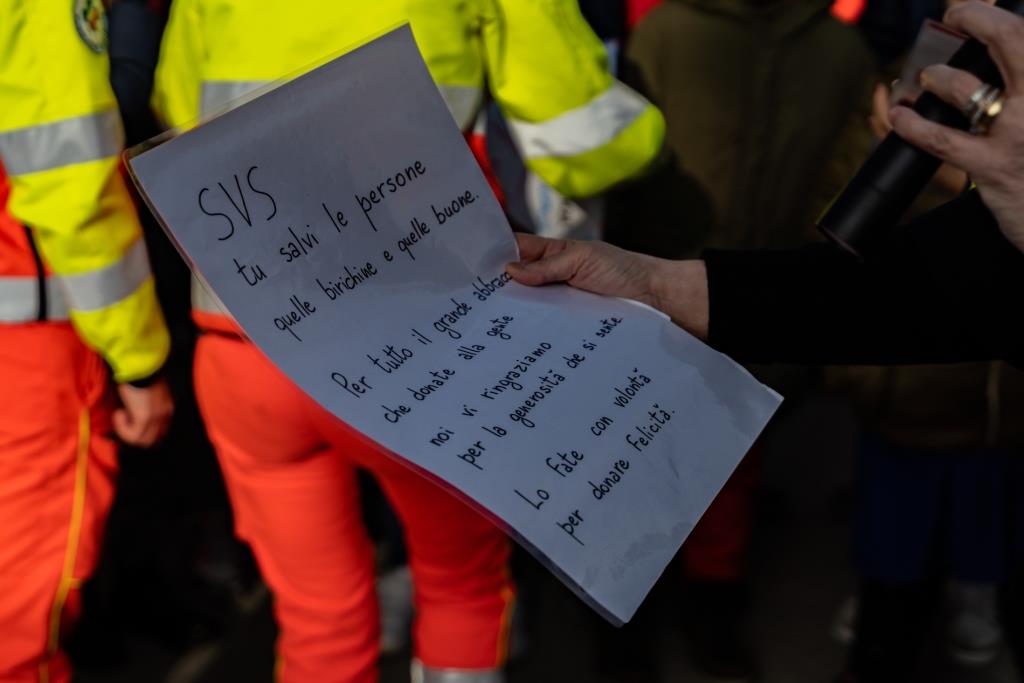 SVS
tu salvi le persone
quelle birichine e quelle buone.
Per tutto il grande abbracc
che donate alla gente
noi vi ringraziamo
per la generosità che si sente
Lo fate con volontà
per donare felicità.